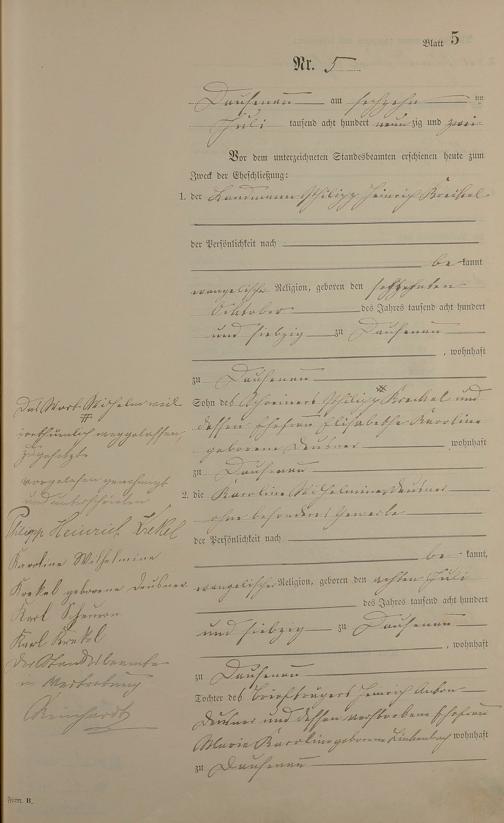 Blatt 5
Nr. 5
Dausenau am sechzehn ten
Juli tausend acht hundert neun zig und zwei
Vor dem unterzeichneten Standesbeamten erschienen heute zum
Zweck der Eheschließung:
1. der Landmann Philipp Heinrich Krekel
der Persönlichkeit nach
be kannt,
evangelischer Religion, geboren den
Oktober des Jahres tausend acht hundert
und siebzig zu Dausenau
, wohnhaft
zu Dausenau
Sohn des Schreiners Philipp Krekel und
dessen Ehefrau Elisabethe Karoline
geborene Deusner wohnhaft
zu Dausenau
2. die Karoline Wilhelmine Deusner
ohne besonderes Gewerbe
der Persönlichkeit nach
be kannt,
evangelischer Religion, geboren den achten Juli
des Jahres tausend acht hundert
und siebzig zu Dausenau
, wohnhaft
zu Dausenau
Tochter des Briefträgers Heinrich Anton
Deusner und dessen verstorbene Ehefrau
Maria Karoline geborene Linkenbach wohnhaft
zu Dausenau
Das Wort Wilhelm weil
irrthümlich weggelassen,
zugesetzt.
vorgelesen genehmigt
und unterschrieben
Philipp Heinrich Krekel
Karoline Wilhelmine
Krekel geborene Deusner
Karl
Karl Krekel
Der Standesbeamte
in Vertretung
Reinhardt
Form. B.